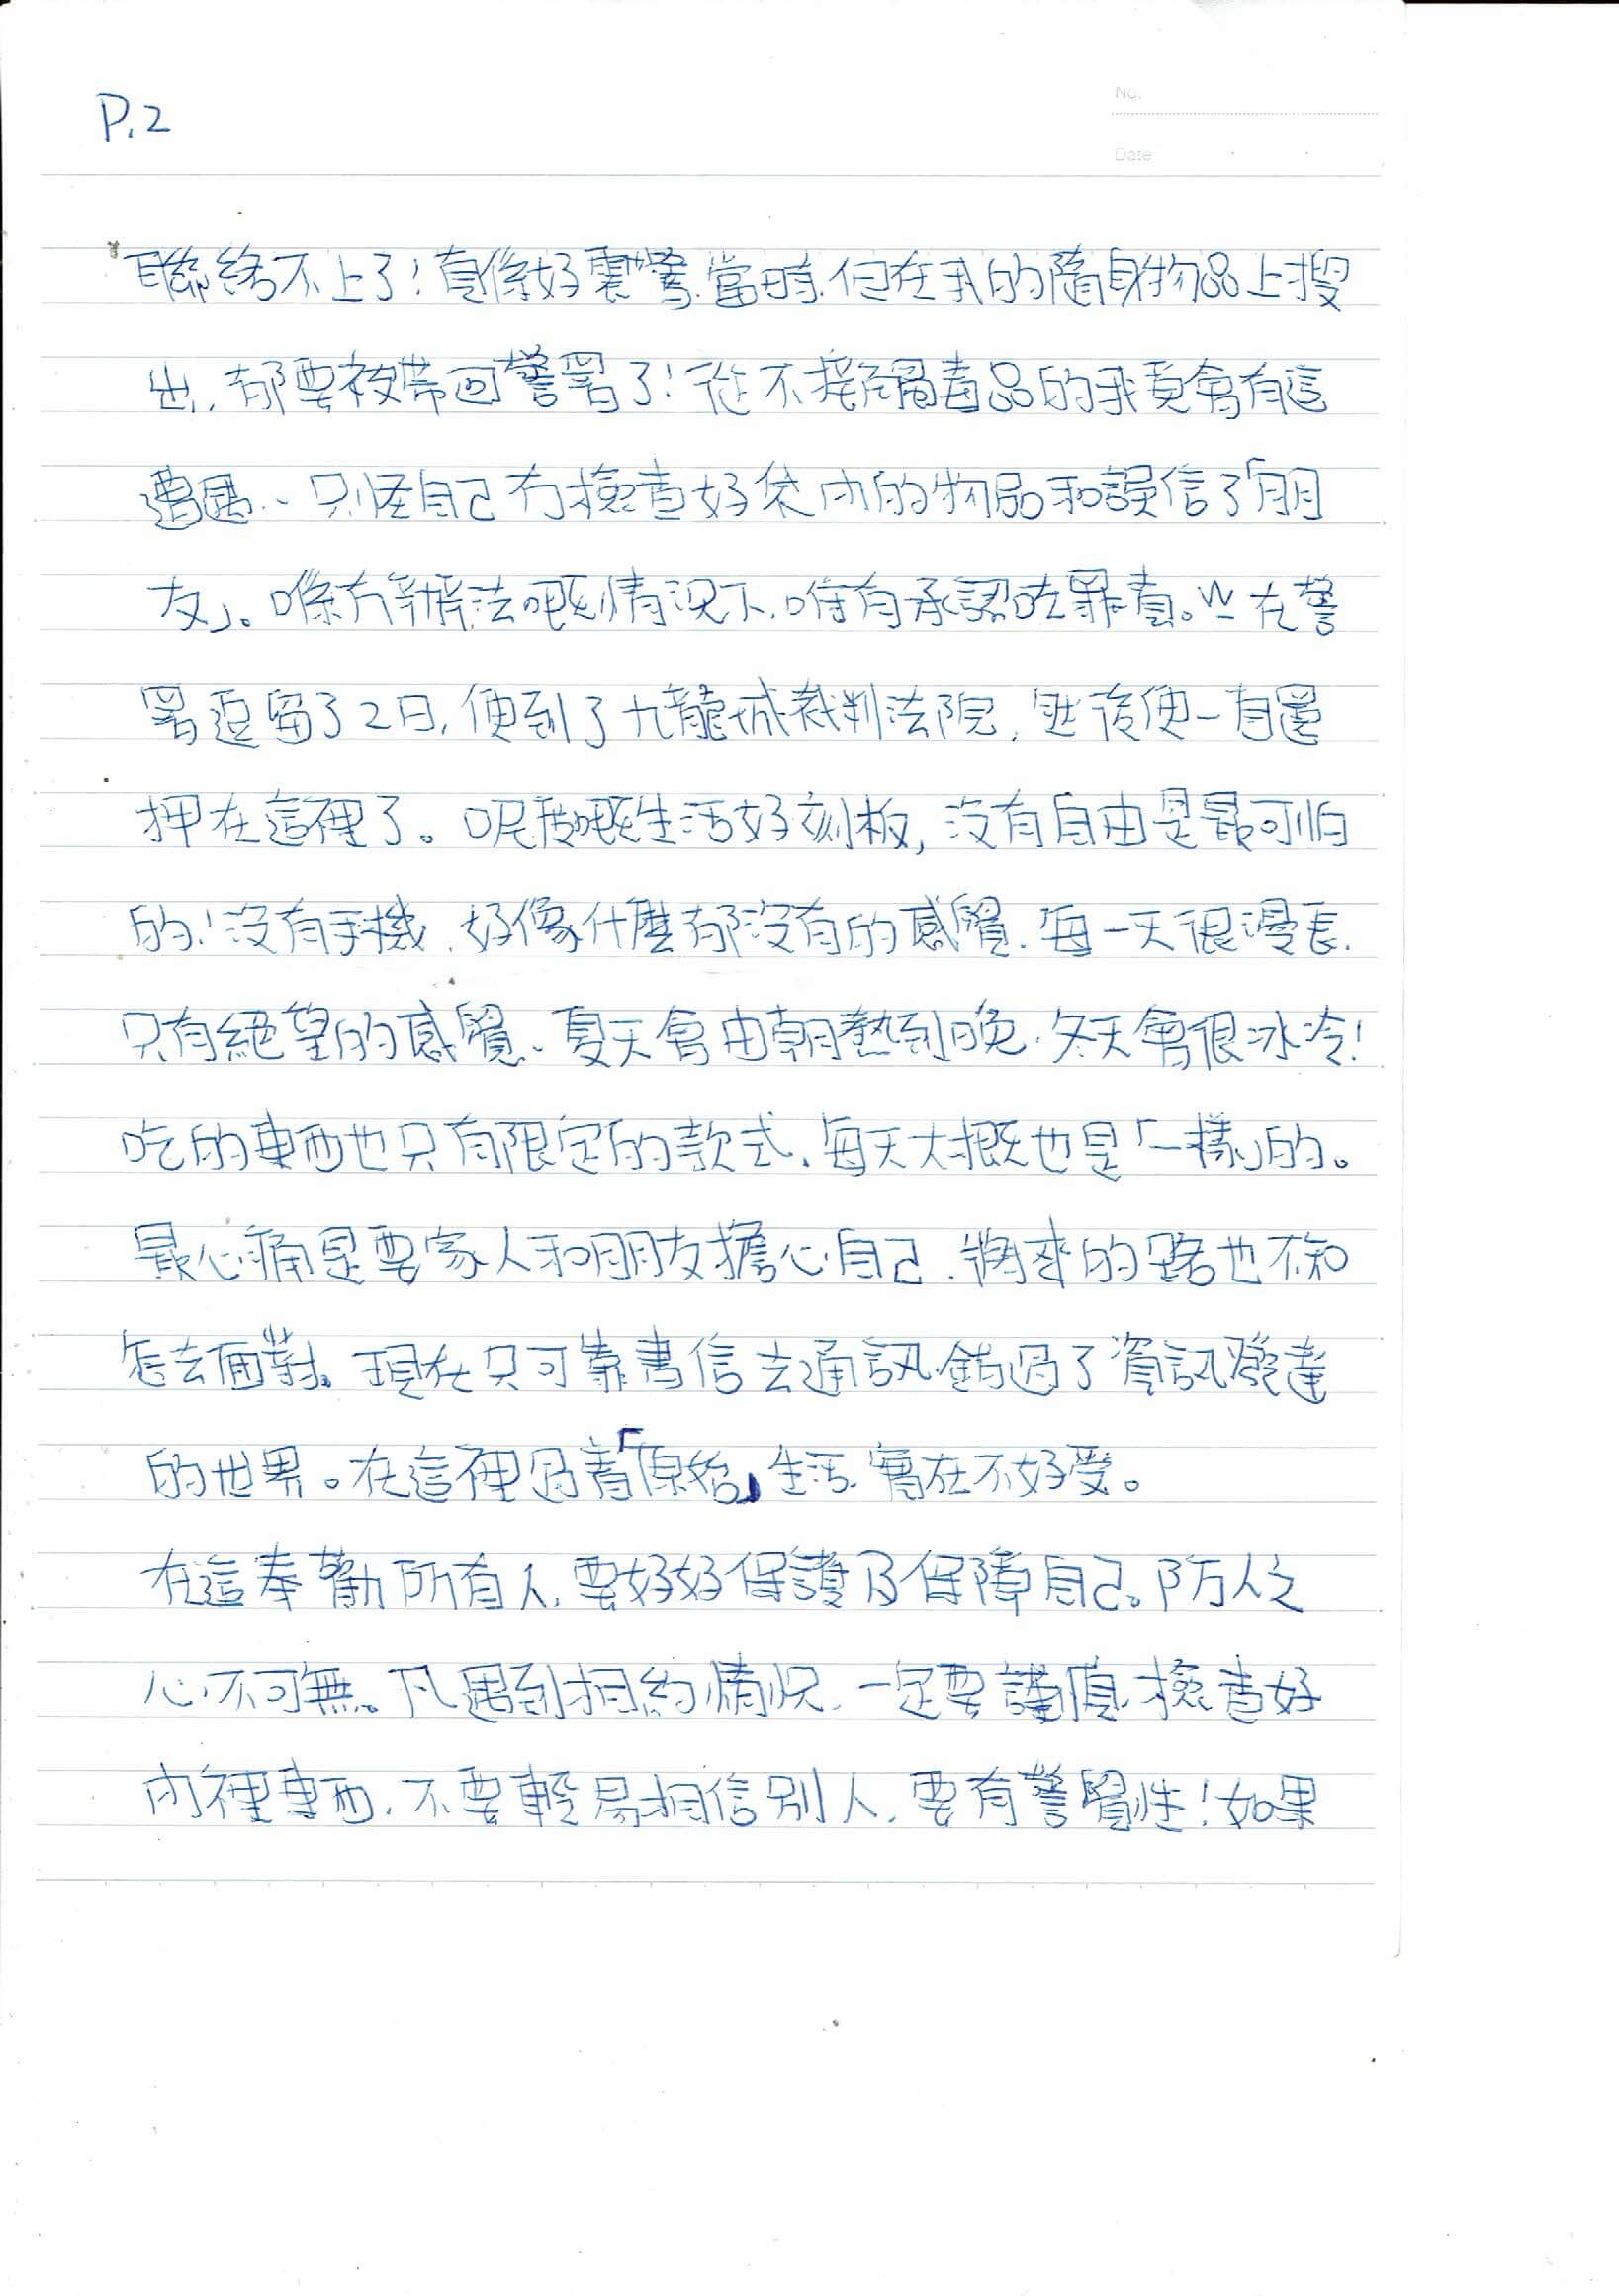 P.2
No.
Date
聯絡不上了!真係好震驚.當時.但在我的隨身物品上搜
出,都要被帶回警署了!從不接觸毒品的我竟會有這
遭遇、只怪自己冇檢查好袋內的物品和誤信了「朋
友」。喺冇辦法嘅情況下.唯有承認咗罪責。在警
署逗留了2日,便到了九龍城裁判法院,然後便一直還
押在這裡了。呢度嘅生活好刻板,沒有自由是最可怕
的!沒有手機.好像什麼都沒有的感覺.每一天很漫長.
只有絕望的感覺、夏天會由朝熱到晚.冬天會很冰冷!
吃的東西也只有限定的款式.每天大概也是「一樣」的。
最心痛是要家人和朋友擔心自己.將來的路也不知
怎去面對。現在只可靠書信去通訊.錯過了資訊發達
的世界。在這裡過着「原始」生活.實在不好受。
在這奉勸所有人.要好好保護及保障自己。防人之
心不可無。凡遇到相約情況.一定要謹慎.檢查好
內裡東西.不要輕易相信別人.要有警覺性!如果